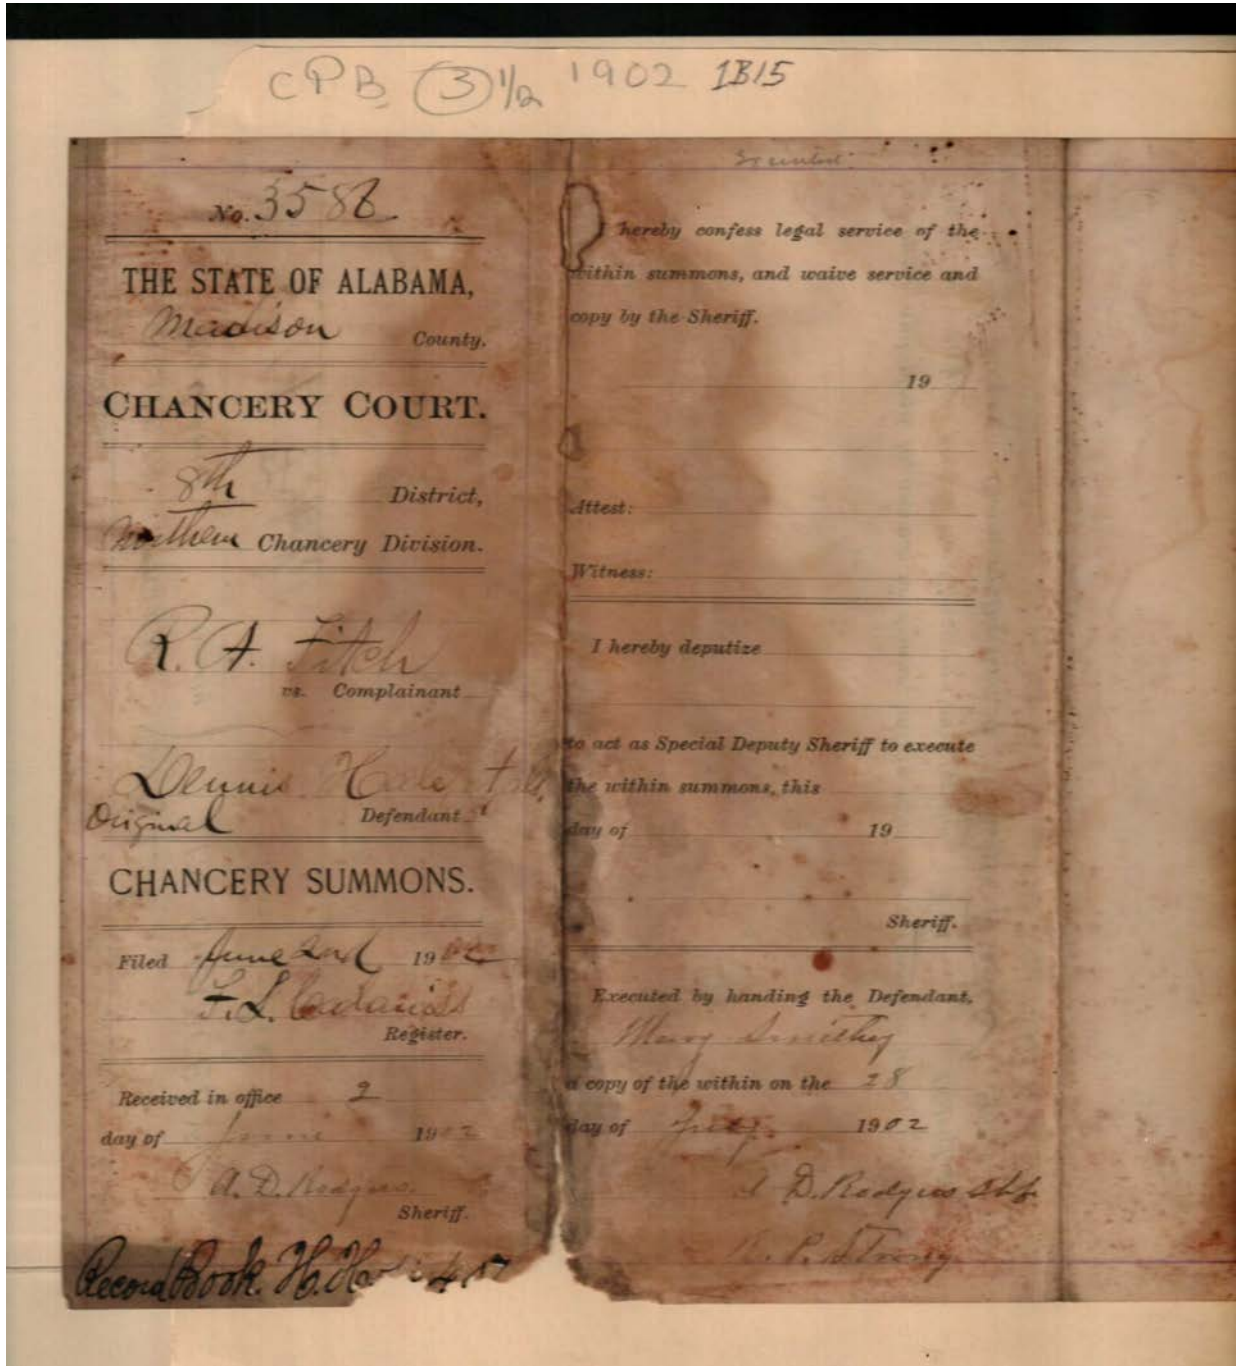 CPB (3) 1/2 1902 1B15
No. 3586
THE STATE OF ALABAMA,
Madison County.
CHANCERY COURT.
8th District,
Northern Chancery Division.
R. A. Fitch
vs. Complainant
Dennis
Original Defendant
CHANCERY SUMMONS.
Filed June 2nd 1902
F. L.
Register.
Received in office 2
day of June 1902
A. D. Rodgers
Sheriff.
Record Book. H.H.
hereby confess legal service of the
within summons, and waive service and
copy by the Sheriff.
19
Attest:
Witness:
I hereby deputize
to act as Special Deputy Sheriff to execute
the within summons, this
day of 19
Sheriff.
Executed by handing the Defendant,
Mary Smithey
a copy of the within on the 28
day of 1902
A D. Rodgers Shff
R. P. Strong